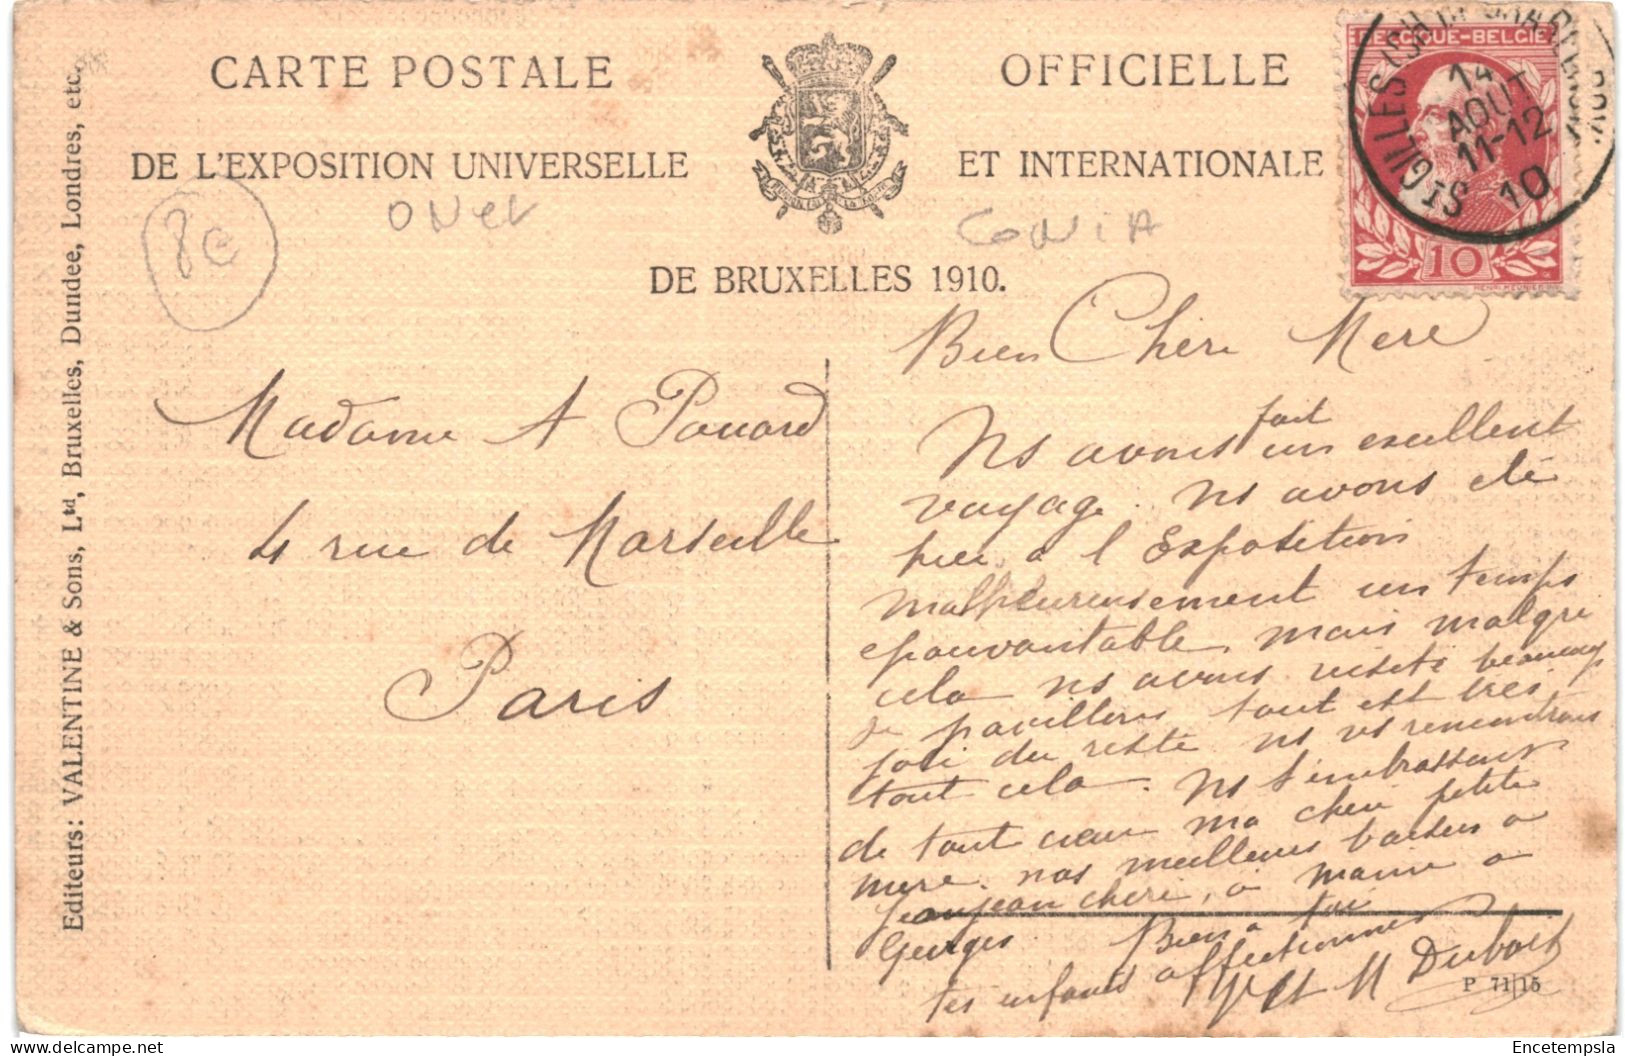 CARTE POSTALE OFFICIELLE
DE L'EXPOSITION UNIVERSELLE ET INTERNATIONALE
DE BRUXELLES 1910.
8€
BELGIQUE-BELGIË
14
AOUT
11-12
10
10
Editeurs: VALENTINE & Sons, Ltd, Bruxelles, Dundee, Londres, etc.
Madame A Pouard
4 rue de Marseille
Paris
Bien Chère Mere
Ns avons fait un excellent
voyage. Ns avons été
hier à l'Exposition
malheureusement un temps
epouvantable, mais malgré
cela ns avons visité beaucoup
de pavillons tout est très
joli du reste ns vs raconterons
tout cela. Ns t'embrassons
de tout cœur ma chère petite
mere. nos meilleurs baisers a
Jeanjean cheri, à mame a
Georges Bien a toi
tes enfants affectionnés
et M Dubois
P 71/15
Encetempsla